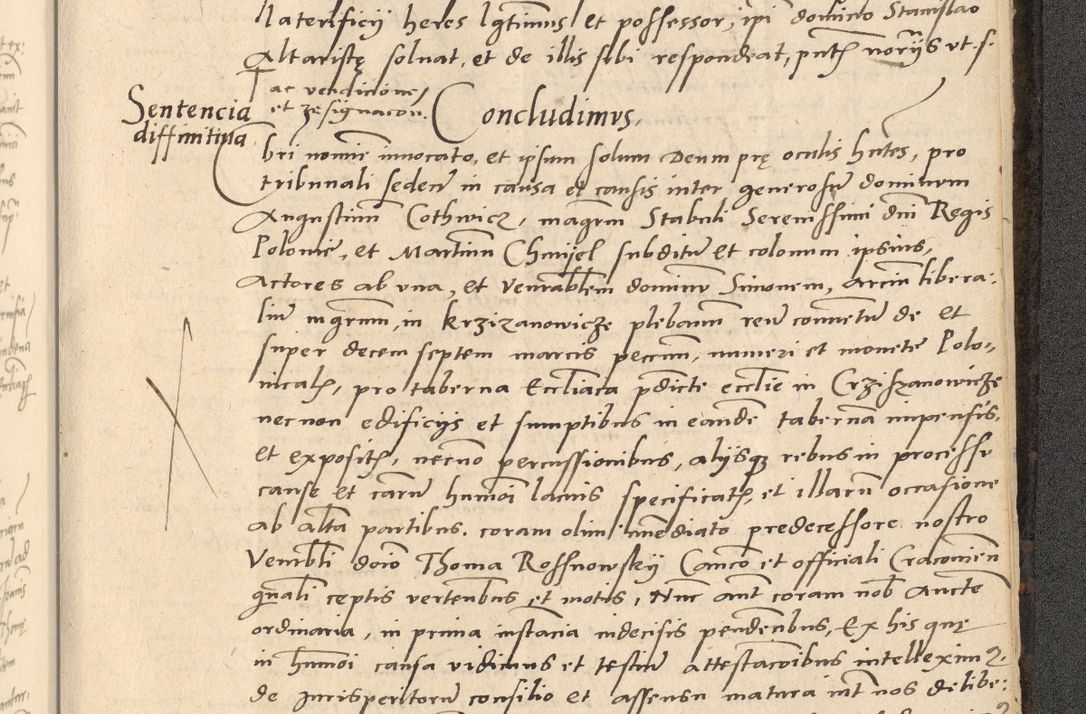 laterificij heres lgtimus et possessor, ipi domino Stanislao
Altaristę soluat, et de illis sibi respondeat, pntz norijs vt. s.
ac vendicione,
et resignacon. Concludimus.
Sentencia
diffinitiua
hri nomine innocato, et ipsum solum Deum prę oculis hntes, pro
tribunali seden in causa et causis inter generosum dominum
Augustinum Cothwicz, magrum Stabuli Serenissimi dni Regis
Polonie, et Martinum Chmijel subditum et colonum ipsius,
Actores ab vna, et venerablem dominum Simonem, arcium libera:
lium mgrum, in krzizanowicze plebanum reum conuentum de et
super decem septem marcis pecunn, numeri et monete Polo:
nicalz, pro taberna Eccliaca pdicte ecclie in Crzischanowicze
necnon edificijs et sumptibus in eande tabernã impensis
et expositz, necnon percussionibus, alijsqz rebus in processu
cause et carum humoi lacius specificatz, et illarum occasione
ab alta partibus. coram olim imediato predecessore nostro
Venerbli doio Thoma Rossnowskij Canco et officiali Cracouien
qnali ceptis vertenbus et motis, Nunc aut coram nob aucte
ordinaria, in prima instacia indecisis pendenbus, Ex his quę
in humoi causa vidimus et testium attestacoibus intelleximus.
de Jurisperitorum consilio et assensu matura int nos delibe: